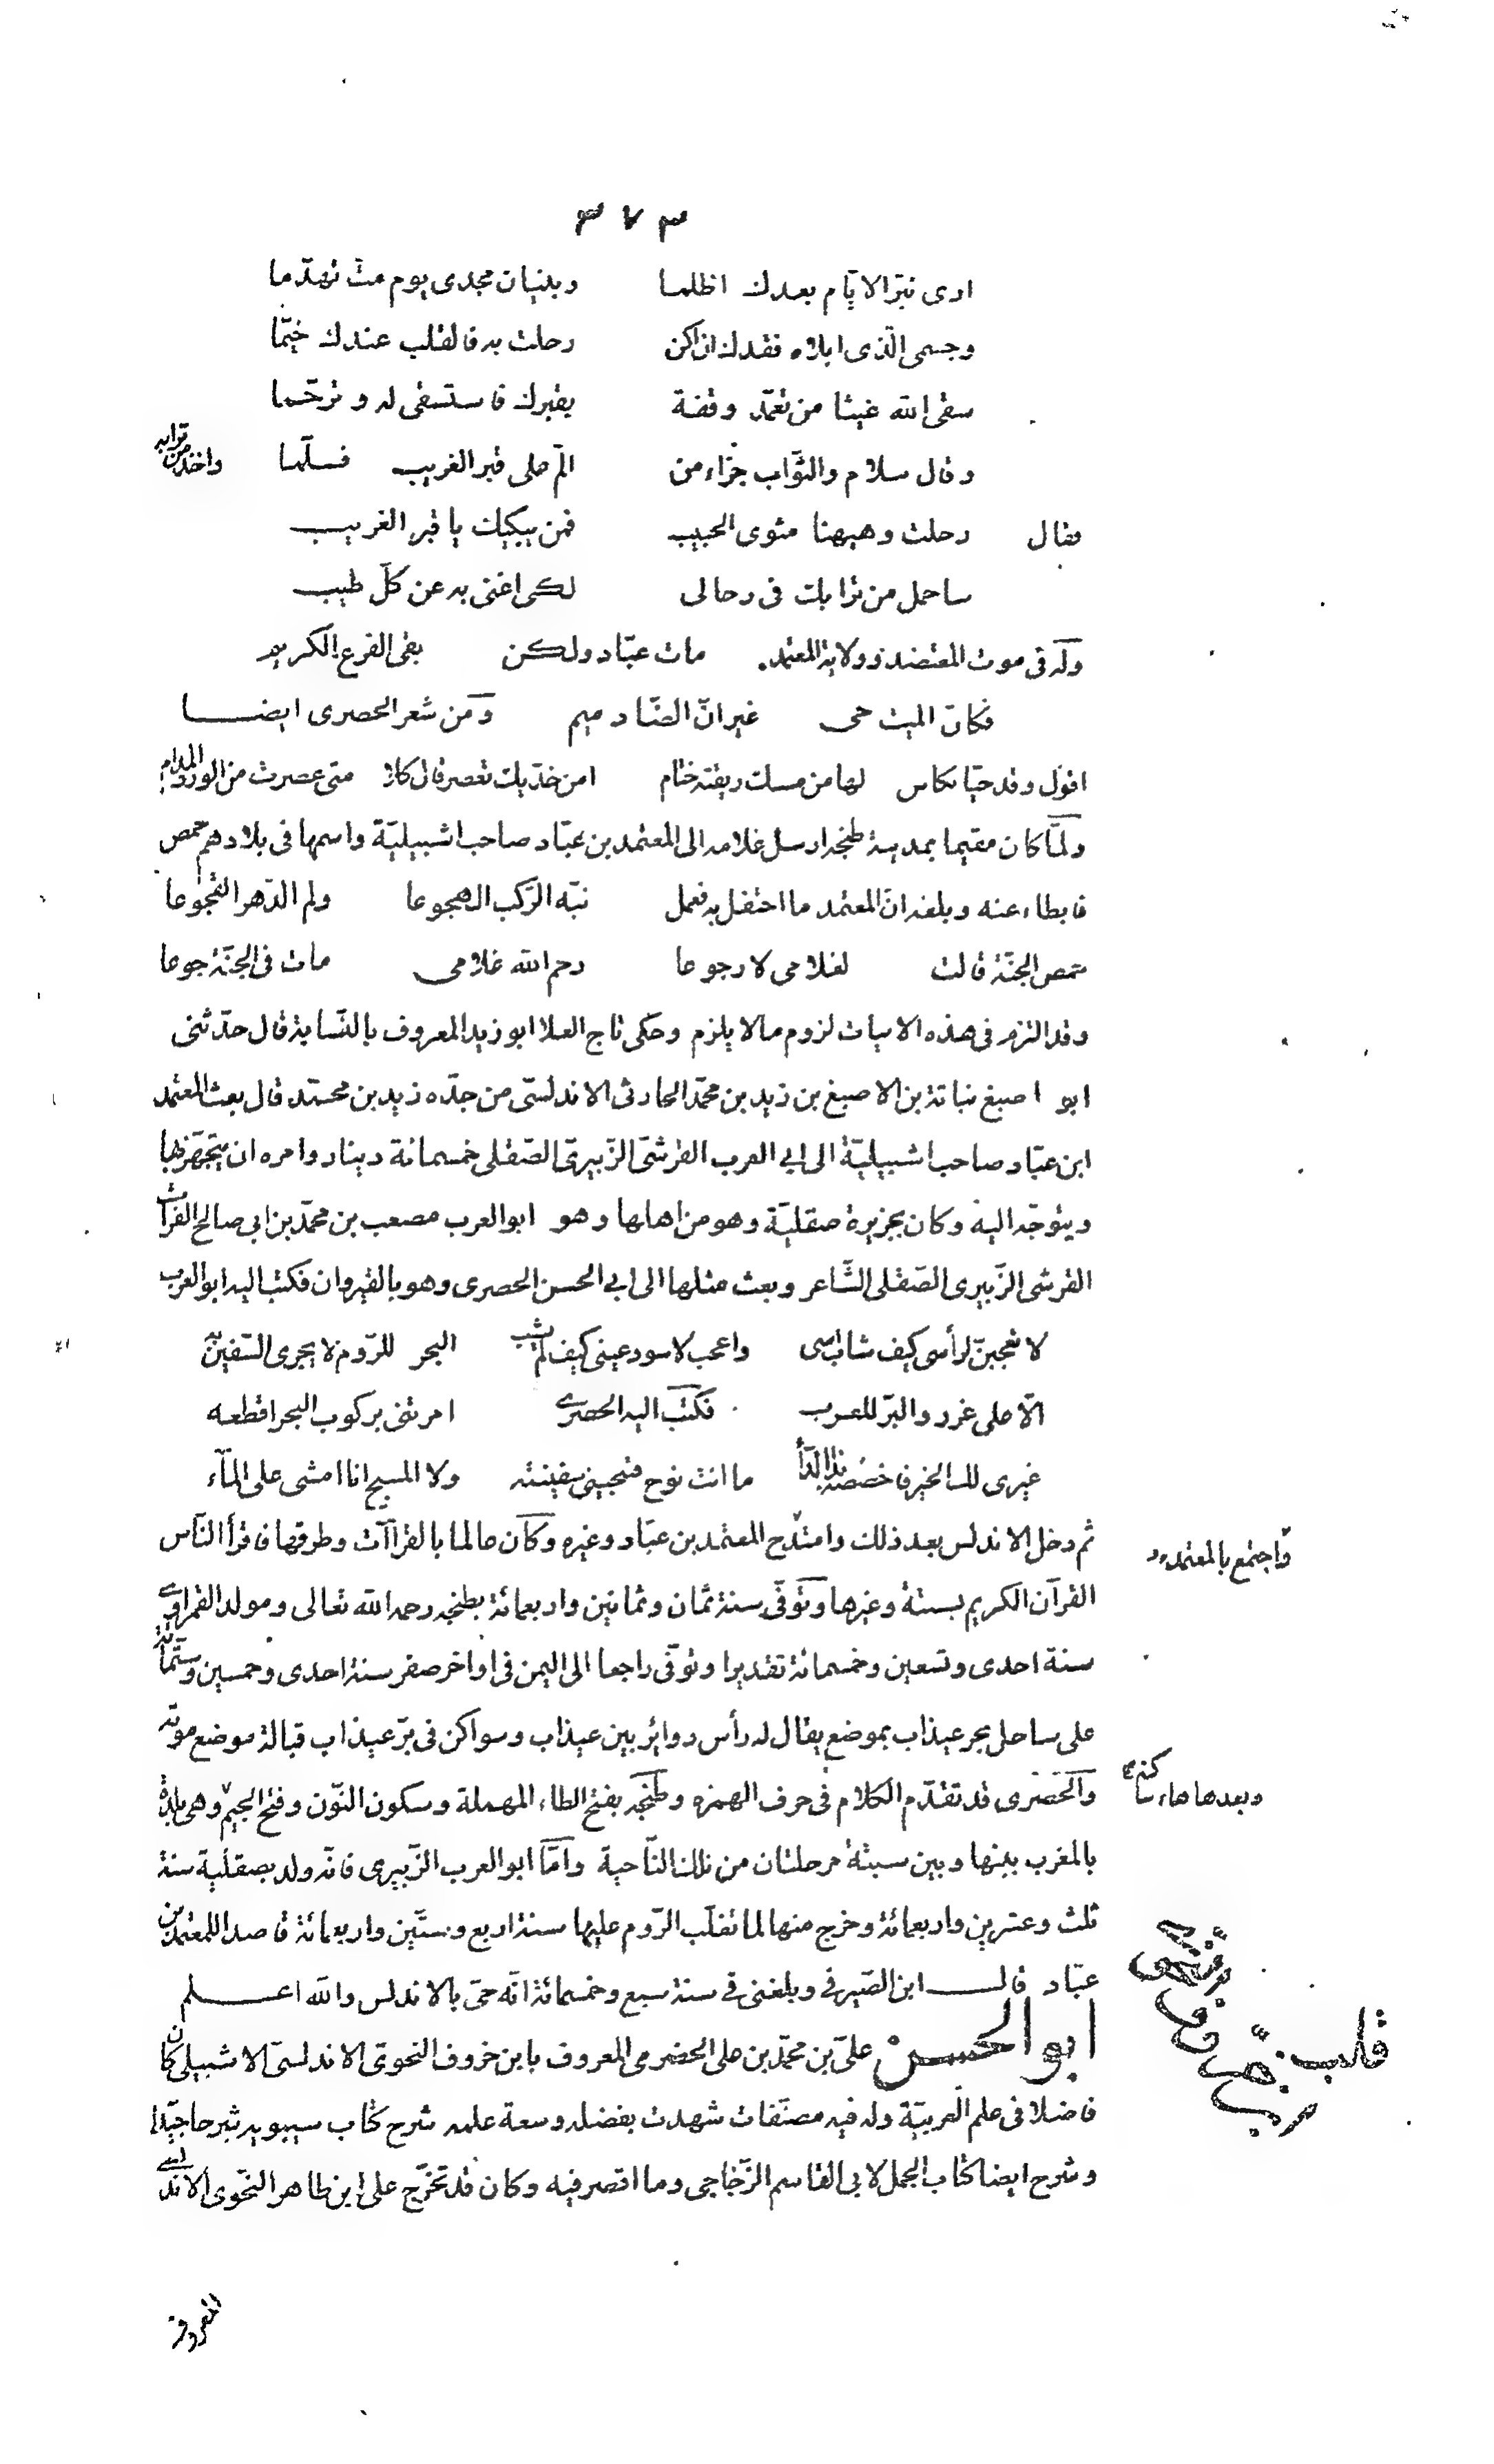 ٣٧٣
ارى نيّر الايّام بعدك اظلما وبنيان مجدى يوم متّ تهدّما
وجسمى الّذى ابلاه فقدك ان اكن رحلت به فالقلب عندك خيّما
سقى الله غيثا من تعمّد وقفة بقبرك فاستسقى له وترحّما
وقال سلام والثّواب جزاء من المّ على قبر الغريب فسلّما واخذ من ترابه
فقال رحلت وهيهنا مثوى الحبيب فمن يبكيك يا قبر الغريب
ساحمل من ترابك فى رحالى لكى اغنى به عن كلّ طيب
وله فى موت المعتضد وولاية المعتمد. مات عبّاد ولكن بقى الفرع الكريم
فكانّ الميت حى غير انّ الضّاد ميم ومن شعر الحصرى ايضا
اقول وقد حيّا بكاس لها من مسك ريقته ختام امن خدّيك تعصر قال كلا متى عصرت من الورد المدام
ولمّا كان مقيما بمدينة طنجه ارسل غلامه الى المعتمد بن عبّاد صاحب اشبيليّة واسمها فى بلادهم حمص
فابطاء عنه وبلغه انّ المعتمد ما احتفل به فعمل نبّه الرّكب الهجوعا ولم الدّهر الفجوعا
حمص الجنّة قالت لغلامى لا رجوعا رحم الله غلامى مات فى الجنّة جوعا
وقد التزم فى هذه الابيات لزوم مالا يلزم وحكى تاج العلا ابو زيد المعروف بالنّسابة قال حدّثنى
ابو اصبغ نباتة بن الاصبغ بن زيد بن محمّد الحارثى الاندلسّى من جدّه زيد بن محمّد قال بعث المعتمد
ابن عبّاد صاحب اشبيليّة الى ابي العرب القرشىّ الزّبيرىّ الصّقلى خمسمائة دينار وامره ان يتجهّز بها
ويتوجّه اليه وكان بجزيرة صقليّة وهو من اهلها وهو ابو العرب مصعب بن محمّد بن ابى صالح الفرات
القرشى الزّبيرى الصّقلى الشّاعر وبعث مثلها الى ابي الحسن الحصرى وهو بالقيروان فكتب اليه ابو العرب
لا تعجبنّ لرأسى كيف شاب اسى واعجب لاسود عينى كيف لم يشب البحر للرّوم لا يجرى السّفين به
الّا على غرر والبرّ للعرب فكتب اليه الحصرى امرتنى بركوب البحر اقطعه
غيرى لك الخير فاخصصه بذا الدّأ ما انت نوح فتنجينى سفينته ولا المسيح انا امشى على المآء
ثم دخل الاندلس بعد ذلك وامتدح المعتمد بن عبّاد وغيره وكان عالما بالقراآت وطرقها فاقرأ النّاس
واجتمع بالمعتمد
القرآن الكريم بسبتة وغيرها وتوفّى سنة ثمان وثمانين واربعمائة بطنجه رحمه الله تعالى ومولد القمراوى
سنة احدى وتسعين وخمسمائة تقديرا وتوفّى راجعا الى اليمن فى اواخر صفر سنة احدى وخمسين وستّمائة
على ساحل بحر عيذاب بموضع يقال له رأس دوائر بين عيذاب وسواكن فى برّ عيذاب قبالة موضع موته
والحصرى قد تقدّم الكلام فى حرف الهمزه وطنجه بفتح الطاء المهملة وسكون النّون وفتح الجيم وهى بلدة
وبعدها هاء ساكنه
بالمغرب بينها وبين سبتة مرحلتان من تلك النّاحية وامّا ابو العرب الزّبيرى فانّه ولد بصقليّة سنة
ثلث وعشرين واربعمائة وخرج منها لما تغلّب الرّوم عليها سنة اربع وستّين واربعمائة قاصدا للمعتمد بن
عبّاد قال ابن الصّيرفى وبلغنى فى سنة سبع وخمسمائة انّه حىّ بالاندلس والله اعلم
ابو الحسن علىّ بن محمّد بن على الحضرمى المعروف بابن خروف النحوىّ الاندلسىّ الاشبيلى كان
فاضلا فى علم العربيّة وله فيه مصنّفات شهدت بفضله وسعة علمه شرح كتاب سيبويه شرحا جيّدا
وشرح ايضا كتاب الجمل لابى القاسم الزّجّاجى وما اقصر فيه وكان قد تخرّج على ابن طاهر النّحوى الاندلسى
المعروف